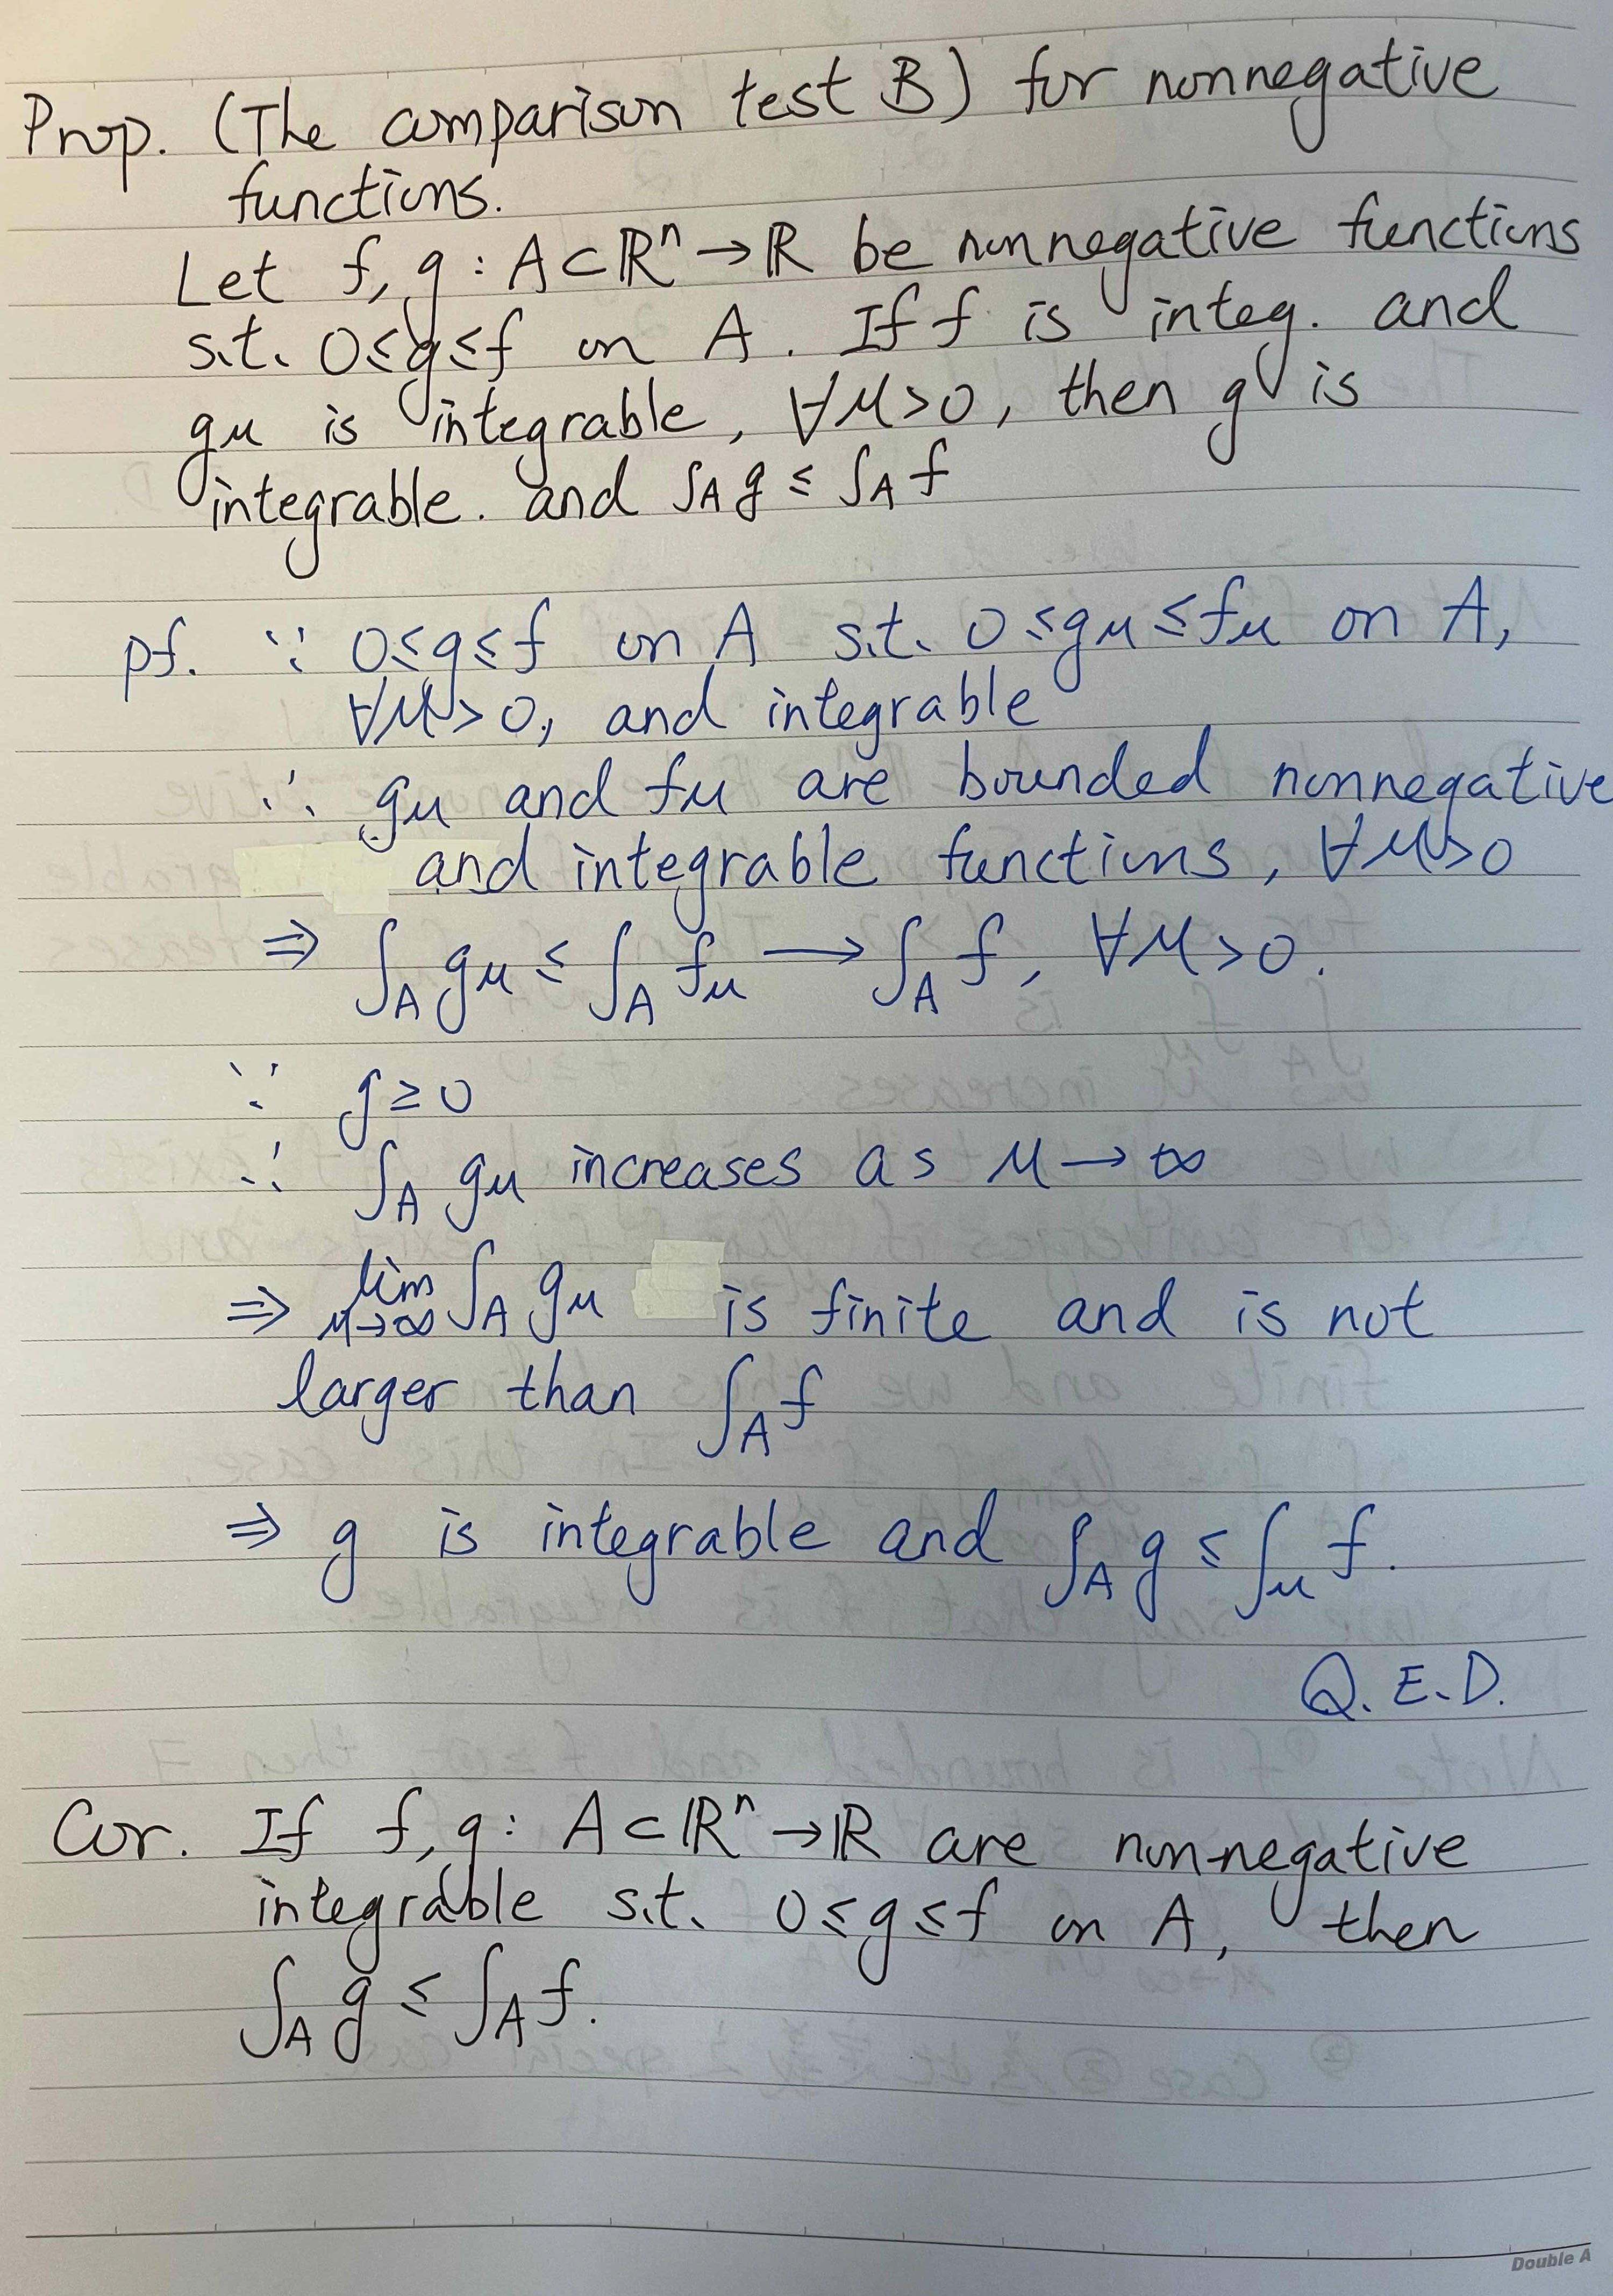 Prop. (The comparison test B) for nonnegative
functions.
Let f, g : A ⊂ ℝⁿ → ℝ be nonnegative functions
s.t. 0 ≤ g ≤ f on A. If f is integ. and
g_M is integrable, ∀M > 0, then g is
integrable. and ∫_A g ≤ ∫_A f
pf. ∵ 0 ≤ g ≤ f on A s.t. 0 ≤ g_M ≤ f_M on A,
∀M > 0, and integrable
∴ g_M and f_M are bounded nonnegative
and integrable functions, ∀M > 0
⇒ ∫_A g_M ≤ ∫_A f_M → ∫_A f, ∀M > 0.
∵ g ≥ 0
∴ ∫_A g_M increases as M → ∞
⇒ lim_{M→∞} ∫_A g_M is finite and is not
larger than ∫_A f
⇒ g is integrable and ∫_A g ≤ ∫_M f.
Q.E.D.
Cor. If f, g : A ⊂ ℝⁿ → ℝ are non-negative
integrable s.t. 0 ≤ g ≤ f on A, then
∫_A g ≤ ∫_A f.
Double A